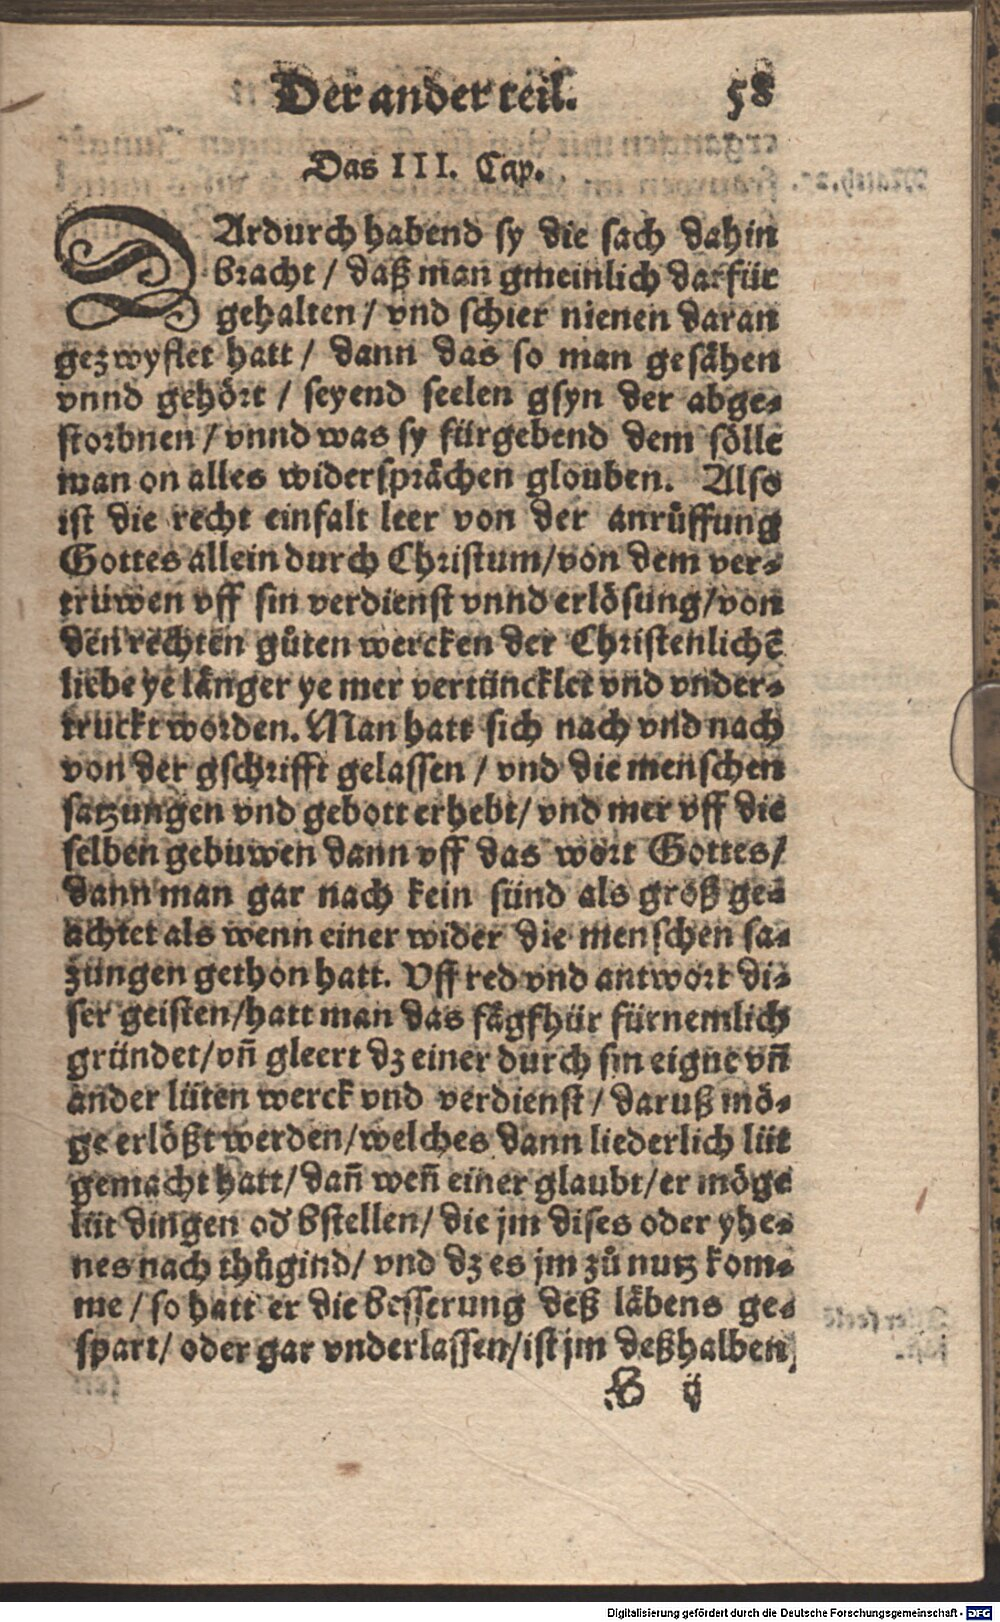 Der ander teil. 58
Das III. Cap.
DArdurch habend sy die sach dahin
bracht / daß man gmeinlich darfür
gehalten / vnd schier nienen daran
gezwyflet hatt / dann das so man gesåhen
vnnd gehört / seyend seelen gsyn der abge⸗
storbnen / vnnd was sy fürgebend dem sölle
man on alles widersprächen glouben. Also
ist die recht einfalt leer von der anrůffung
Gottes allein durch Christum/von dem ver⸗
truwen vff sin verdienst vnnd erlösung/von
den rechten gůten wercken der Christenlichē
liebe ye länger ye mer vertüncklet vnd vnder⸗
truckt worden. Man hatt sich nach vnd nach
von der gschrifft gelassen / vnd die menschen
satzungen vnd gebott erhebt/ vnd mer vff die
selben gebuwen dann vff das wort Gottes/
dann man gar nach kein sünd als groß ge⸗
achtet als wenn einer wider die menschen sa⸗
zungen gethon hatt. Vff red vnd antwort di⸗
ser geisten/hatt man das fägfhür fürnemlich
gründet/vñ gleert dz einer durch sin eigne vñ
ander lüten werck vnd verdienst / daruß mö⸗
ge erlößt werden/welches dann liederlich lüt
gemacht hatt/ dañ weñ einer glaubt/er möge
lüt dingen od' bstellen/ die jm dises oder yhe⸗
nes nach thůgind/ vnd dz es jm zů nutz kom⸗
me / so hatt er die besserung deß läbens ge⸗
spart/ oder gar vnderlassen/ist jm deßhalben
ij